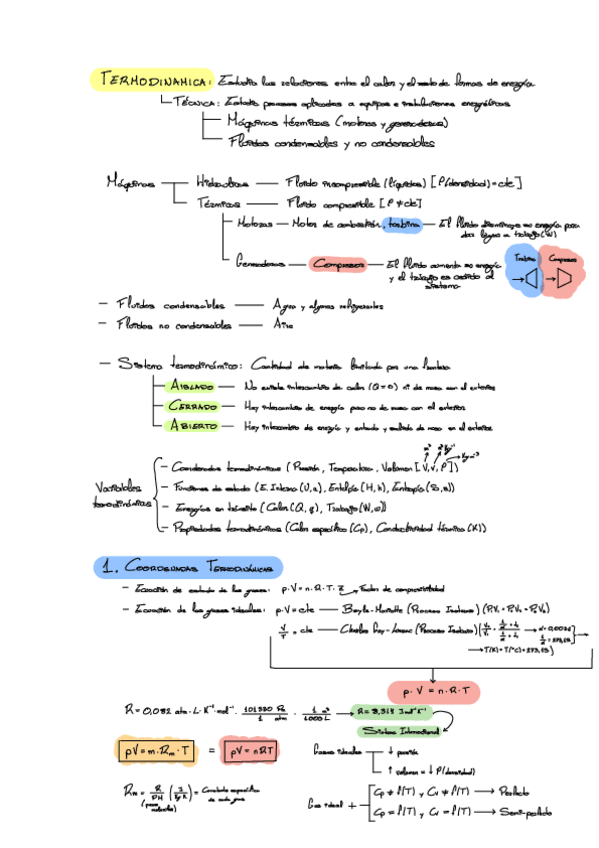 TERMODINAMICA: Estudia las relaciones entre el calor y el resto de formas de energía
TÉCNICA: Estudia procesos aplicados a equipos e instalaciones energéticas
Máquinas térmicas (motoras y generadoras)
Fluidos condensables y no condensables
Máquinas — Hidraulicas — Fluido incompresible (líquidos) [ρ(densidad) = cte]
Térmicas — Fluido compresible [ρ ≠ cte]
Motoras — Motor de combustión, turbina — El fluido disminuye su energía para
dar lugar a trabajo (W)
Generadoras — Compresor — El fluido aumenta su energía
y el trabajo es cedido al
sistema
Turbina Compresor
— Fluidos condensables — Agua y algunos refrigerantes
— Fluidos no condensables — Aire
— Sistema termodinámico: Cantidad de materia limitada por una frontera
AISLADO — No existe intercambio de calor (Q=0) ni de masa con el exterior
CERRADO — Hay intercambio de energía pero no de masa con el exterior
ABIERTO — Hay intercambio de energía y entrada y salida de masa en el exterior
m³ m³kg⁻¹
kg m⁻³
Variables
termodinámicas
— Coordenadas termodinámicas (Presión, Temperatura, Volumen [V, v, ρ])
— Funciones de estado (E. Interna (U, u), Entalpía (H, h), Entropía (S, s))
— Energías en tránsito (Calor (Q, q), Trabajo (W, w))
— Propiedades termodinámicas (Calor específico (Cp), Conductividad térmica (K))
1. COORDENADAS TERMODINÁMICAS
— Ecuación de estado de los gases: p·V = n·R·T·Z → Factor de compresibilidad
— Ecuación de los gases ideales: p·V = cte — Boyle-Mariotte (Proceso Isotermo) (P₁V₁ = P₂V₂ = P₃V₃)
V/T = cte — Charles Gay-Lussac (Proceso Isobaro)
→ T(K) = T(ºC) + 273,15
p · V = n · R · T
R = 0,082 atm · L · K⁻¹ · mol⁻¹ · 101330 Pa / 1 atm · 1 m³ / 1000 L → R = 8,314 J mol⁻¹ K⁻¹
Sistema Internacional
pV = m · Rm · T = pV = nRT
Gases ideales — ↓ presión
↑ volumen = ↓ ρ(densidad)
Rm = R / PM (J / kg K) = Constante específica
de cada gas
(peso
molecular)
Gas ideal + Cp ≠ f(T) y Cv ≠ f(T) → Perfecto
Cp = f(T) y Cv = f(T) → Semi-perfecto